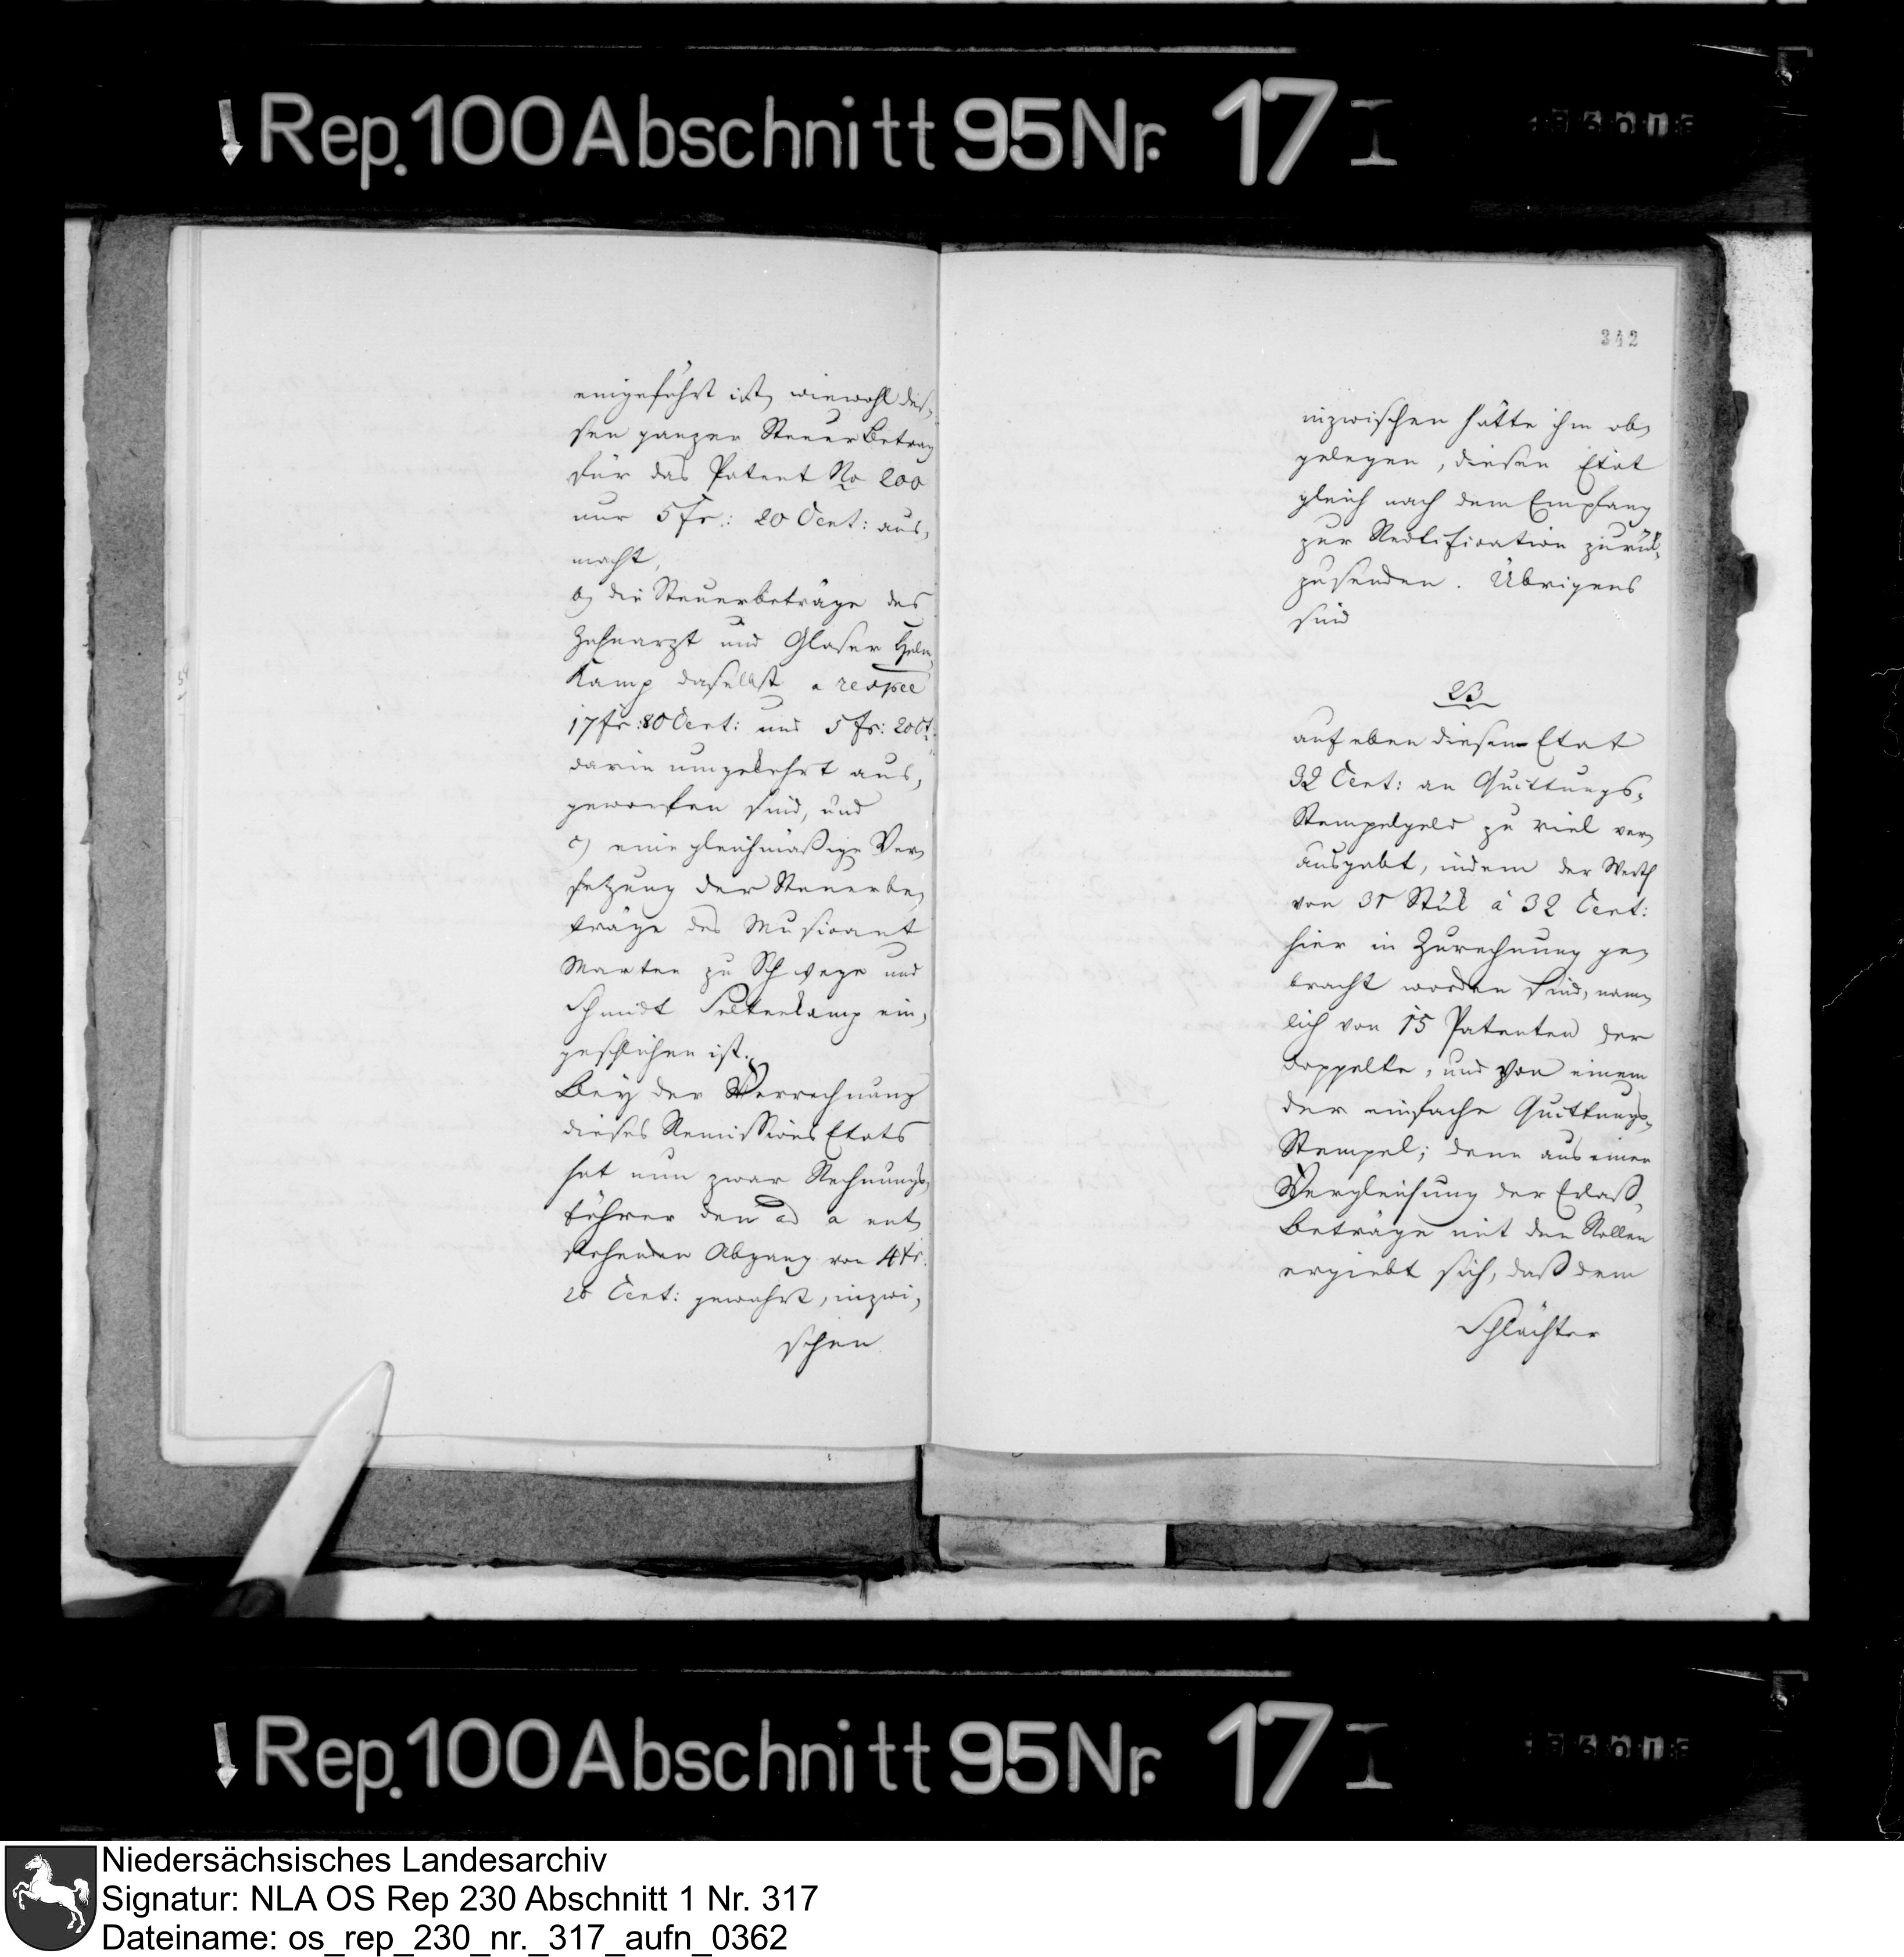 Rep. 100 Abschnitt 95 Nr. 17 I
eingeführt ist, wiewohl des,
sen ganzer Steuer Betrag
für das Patent No 200
nur 5 fr.: 20 Cent: aus,
macht,
b, die Steuerbeträge des
Zahnarzt und Glaser Helm
Kamp daselbst a respee
17 fr: 80 Cent: und 5 fr: 20 Ct:
darin umgekehrt aus,
geworfen sind, und
c) eine gleichmäßige Ver,
setzung der Steuerbe,
träge des Musicant
Marten zu Schwege und
Schmidt Feltenkamp ein,
geschlichen ist.
Bey der Verrechnung
dieses Remissions Etats
hat nun zwar Rechnungs,
führer den ad a ent,
stehenden Abgang von 4 fr.
26 Cent: gewahrt, inzwi,
schen
342
inzwischen hätte ihm ob,
gelegen, diesen Etat
gleich nach dem Empfang
zur Rectification zurük,
zusenden. Übrigens
sind
23
auf eben diesem Etat
32 Cent: an Quittungs,
Stempelgeld zu viel ver,
ausgabt, indem der Werth
von 31 Stük à 32 Cent:
hier in Zurechnung ge,
bracht worden sind, näm,
lich von 15 Patenten der
doppelte, und von einem
der einfache Quittungs,
Stempel; denn aus einer
Vergleichung der Erlaß,
Beträge mit den Rollen
ergiebt sich, daß dem
Schlächter
Rep. 100 Abschnitt 95 Nr. 17 I
Niedersächsisches Landesarchiv
Signatur: NLA OS Rep 230 Abschnitt 1 Nr. 317
Dateiname: os_rep_230_nr._317_aufn_0362